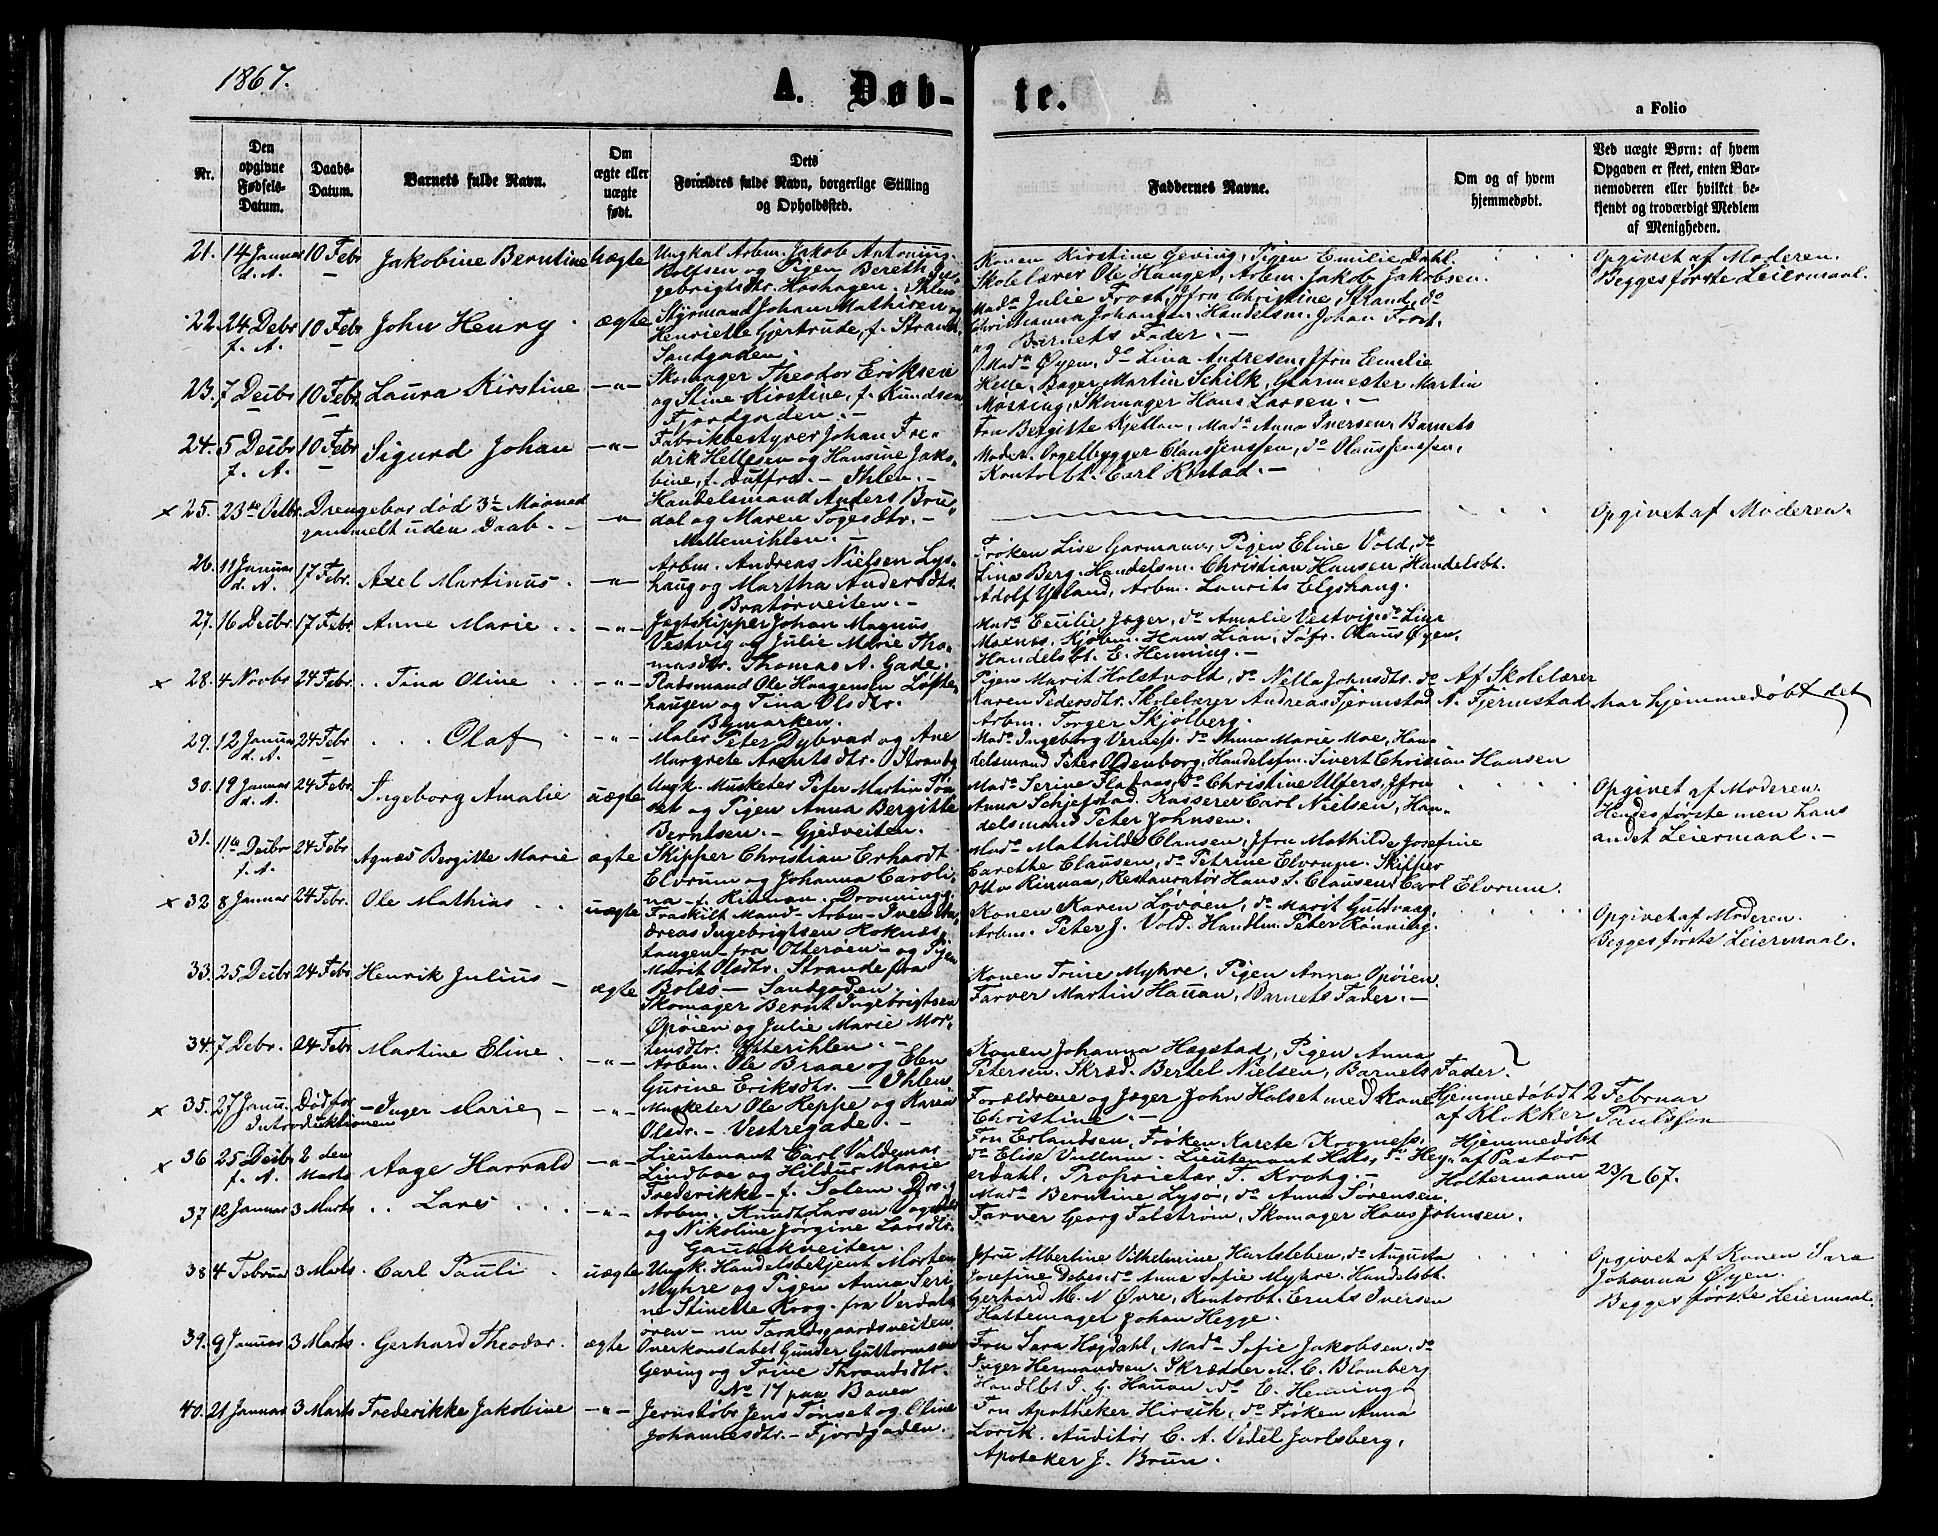 1867.
A. Døb-
te.
a Folio
Nr.
Den
opgivne
Fødsels-
Datum.
Daabs-
Datum.
Barnets fulde Navn.
Om
ægte eller
uægte
født.
Dets
Forældres fulde Navn, borgerlige Stilling
og Opholdssted.
Faddernes Navne.
Om og af hvem
hjemmedøbt.
Ved uægte Børn: af hvem
Opgaven er skeet, enten Bar-
nemoderen eller hvilket be-
kjendt og troværdigt Medlem
af Menigheden.
21. 14 Januar 10 Febr Jakobine Berntine uægte Ungkal Arbm. Jakob Antonius
d. A. Rolfsen og Pigen Bereth Inge-
gebrigtsdtr. Hoshagen. Ihlen
Konen Kirstine Geving, Pigen Emilie Dahl.
Skolelærer Ole Hanges, Arbm. Jakob Jakobsen.
Opgivet af Moderen.
Begges første Leiermaal.
22. 24 Debr 10 Febr John Henry ægte Styrmand Johan Mathisen og
f. A. Henriette Gjertrude, f. Strand
Sandgaden.
Mada Julie Frost, Jfru Christine Strand, do
Christianna Johansen, Handelsm. Johan Frost.
og Barnets Fader. —
23. 7 Debr 10 Febr. Laura Kirstine —"— Skomager Theodor Eriksen
og Stine Kirstine, f. Knudsen
Fjordgaden. —
Mada Øyen, do Lina Andresen, Jfru Emilie
Helle, Bager Martin Schilk, Glarmester Martin
Møsting, Skomager Hans Larsen. —
24. 5 Decbr 10 Febr Sigurd Johan —"— Fabrikbestyrer Johan Fre-
f. A. drik Hellesen og Hansine Jako-
bine, f. Duffra. — Ihlen. —
Fru Bergitte Kjellan, Mada Anna Iversen, Barnets
Moder. Orgelbygger Claus Jenssen, do Olaus Jenssen,
Kontorbt. Carl Rostad. —
x 25. 23de Octbr. Drengebar død 3½ Maaned
gammelt uden Daab. —"— Handelsmand Anders Brue-
dal og Maren Togesdtr. —
Mellemihlen. —
Opgivet af Moderen.
26. 11 Januar 17 Febr. Axel Martinus —"— Arbm. Andreas Nielsen Lys-
d. A. haug og Martha Andersdtr.
Bratørveiten. —
Frøken Lise Garmann, Pigen Eline Vold, do
Lina Berg. Handelsm. Christian Hansen Handelsbt.
Adolf Ysland, Arbm. Laurits Elgshaug.
27. 16 Debr. 17 Febr. Anne Marie —"— Jægtskipper Johan Magnus
Vestvig og Julie Marie Tho-
masdtr. Thomas A. Gade.
Mada Emilie Jæger, do Amalie Vestvig, do Line
Moxnes. Kjøbm. Hans Lian, Søfr. Olaus Øyen,
Handelsbt. E. Henning. —
x 28. 4 Novbr 24 Febr. Tina Oline —"— Pladsmand Ole Haagensen Løfte-
haugen og Tina Olsdtr.
Bymarken.
Pigen Marit Holstvold, do Nella Johnsdtr. do
Karen Pedersdtr. Skolelærer Andreas Fjermstad
Arbm. Torger Skjølberg.
Af Skolelærer
A. Fjermstad har hjemmedøbt det
29. 12 Januar 24 Febr Olaf —"— Maler Peter Dybvad og Ane
d. A. Margrete Arentsdtr. Ø. Strandg
Mada Ingeborg Verness. do Anna Marie Moe, Han-
delsmand Peter Oldenborg, Handelsfm. Sivert Christian Hansen
30. 19 Januar 24 Febr. Ingeborg Amalie uægte Ungk. Musketer Peter Martin Tøn-
d. A. set og Pigen Anna Bergitte
Berntsen. — Gjedveiten.
Mada Serine Fladaas, do Christine Ulfers, Jfru
Anna Schjefstad. Kasserer Carl Nielsen, Han-
delsmand Peter Johnsen.
Opgivet af Moderen.
Hendes første men hans
andet Leiermaal. —
31. 11te Decbr 24 Febr Agnæs Bergitte Marie ægte Skipper Christian Erhardt
f. A. Elvrum og Johanna Caroli-
na f. Rinnan. Dronningg
Mada Mathilde Clausen, Jfru Mathilde Josefine
Carethe Clausen, do Petrine Elvrum. Skipper
Otto Rinnan, Restauratør Hans S. Clausen, Carl Elvrum.
x 32 8 Januar 24 Febr. Ole Mathias uægte Fraskilt Mand - Arbm - Iver An-
dreas Ingebrigtsen Roknæs-
tangen - fra Otterøen - og Pigen
Marit Olsdtr. Strande fra
Bolsø — Sandgaden.
Konen Karen Løvaen, do Marit Guldvaag.
Arbm. Peter J. Vold. Handlm. Peter Rønning.
Opgivet af Moderen.
Begges første Leiermaal.
33. 25 Debr 24 Febr Henrik Julius — ægte Skomager Bernt Ingebrigtsen
Opøien og Julie Marie Mor-
tensdtr. Ytterihlen. —
Konen Trine Myhre, Pigen Anna Opøien.
Farver Martin Hauan, Barnets Fader. —
34. 7 Debr. 24 Febr Martine Eline —"— Arbm. Ole Braae og Elen
Gurine Eriksdtr. — Ihlen.
Konen Johanna Hægstad, Pigen Anna
Petersen. Skræd. Bertel Nielsen, Barnets Fader.
x 35. 27 Janu. Død før
Introduktionen —Inger Marie —"— Musketer Ole Reppe og Karen
Olsdr. — Vestregade. —
Forældrene og Jæger John Halset med Kone
Christine. —
Hjemmedøbt 2 Februar
af Klokker Paulssen
x 36 25 Debr 2 den Aage Harrald —"— Lieutenant Carl Valdemar
f. A. Marts Lindboe og Hildur Marie
Frederikke — f. Solem. Dro-g
Fru Erlandsen, Frøken Karete Krogness.
do Elise Vullum. Lieutenant Hals, do Hey-
erdahl, Proprietær T. Krohg.
Hjemmedøbt
af Pastor
Holtermann 23/2 67.
37 12 Januar 3 Marts Lars —"— Arbm. Knudt Larsen Vognild
og Nikoline Jørgine Larsdtr.
Gaubækveiten
Mada Berntine Lysø, do Anna Sørensen.
Farver Georg Falstrøm, Skomager Hans Johnsen.
38 4 Februar 3 Marts Carl Pauli uægte Ungk. Handelsbetjent Morten
Myhre og Pigen Anna Seri-
ne Stinette Krog. fra Verdals-
øren — nu Taraldsgaardsveiten.
Jfru Albertine Vilhelmine Hartsleben, do Augusta
Josefine Debes, do Anne Sofie Myhre. Handelsbt.
Gerhard M. N Øvre, Kontorbt. Ernts Iversen
Hattemager Johan Hegge.
Opgivet af Konen Sara
Johanna Øyen.
Begges første Leiermaal.
39. 9 Januar 3 Marts Gerhard Theodor. ægte Overkonstabel Gunder Guttormsen
Geving og Trine Thrandsdtr.
No 17 paa Banen
Fru Sara Høgdahl, Mada Sofie Jakobsen, do
Inger Hermandsen. Skrædder M. C. Blomberg
Handlbt J. G. Hauan, do E. Henning
40. 21 Januar 3 Marts Frederikke Jakobine —"— Jernstøbr Jens Tønset og Oline
Johannesdtr. — Fjordgaden.
Fru Apotheker Hirsch, do Frøken Anna
Lorik. Auditør C. A. Vedel Jarlsberg,
Apoteker J. Brun.